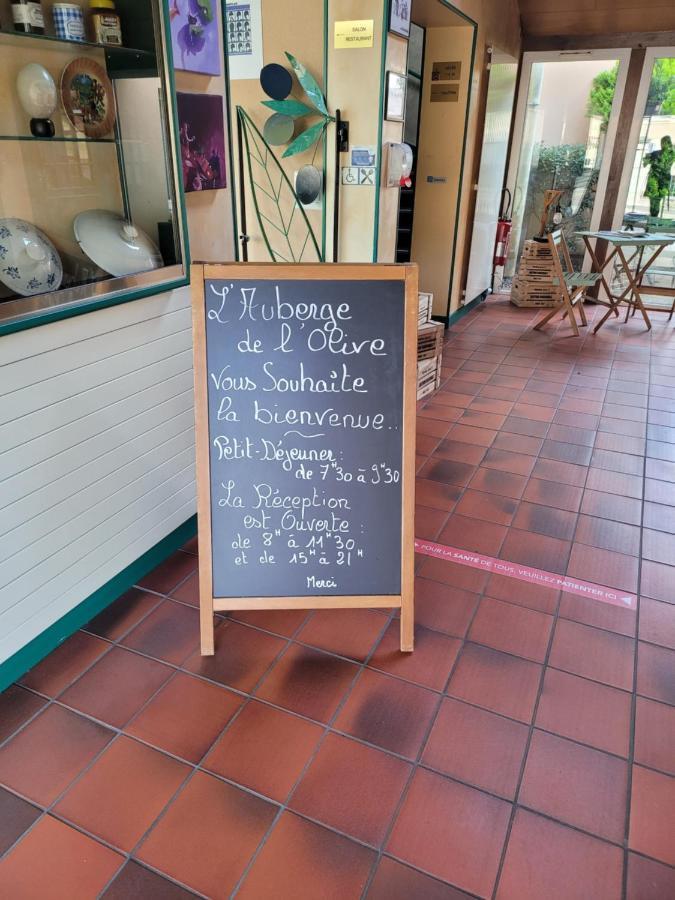 SALON
RESTAURANT
L'Auberge
de l'Olive
Vous Souhaite
la bienvenue...
Petit-Déjeuner :
de 7H30 à 9H30
La Réception
est Ouverte :
de 8H à 11H30
et de 15H à 21H
Merci
POUR LA SANTÉ DE TOUS, VEUILLEZ PATIENTER ICI